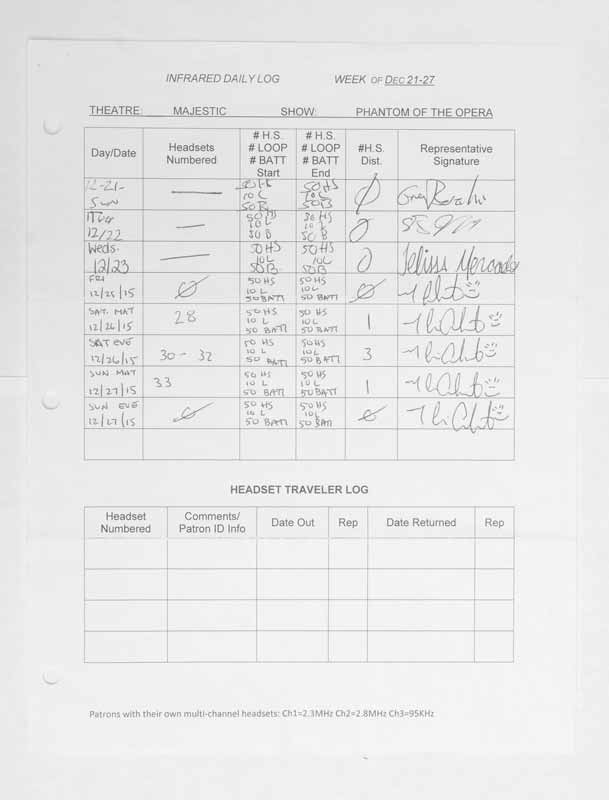 INFRARED DAILY LOG WEEK OF DEC 21-27
THEATRE: MAJESTIC SHOW: PHANTOM OF THE OPERA
Day/Date
Headsets
Numbered
# H.S.
# LOOP
# BATT
Start
# H.S.
# LOOP
# BATT
End
#H.S.
Dist.
Representative
Signature
12-21-
SUN
—
10 L
50 B
50 HS
10 L
50 B
Ø
12/22
—
50 HS
10 L
50 B
50 HS
10 L
50 B
0
Weds.
12/23
—
50 HS
10L
50B
50 HS
10L
50B
0
FRI
12/25/15
Ø
50 HS
10 L
50 BATT
50 HS
10 L
50 BATT
Ø
SAT. MAT
12/26/15
28
50 HS
10 L
50 BATT
50 HS
10 L
50 BATT
1
SAT EVE
12/26/15
30 - 32
50 HS
10 L
50 BATT
50 HS
10 L
50 BATT
3
SUN MAT
12/27/15
33
50 HS
10 L
50 BATT
50 HS
10 L
50 BATT
1
SUN EVE
12/27/15
Ø
50 HS
10 L
50 BATT
50 HS
10L
50 BATT
Ø
HEADSET TRAVELER LOG
Headset
Numbered
Comments/
Patron ID Info
Date Out
Rep
Date Returned
Rep
Patrons with their own multi-channel headsets: Ch1=2.3MHz Ch2=2.8MHz Ch3=95KHz